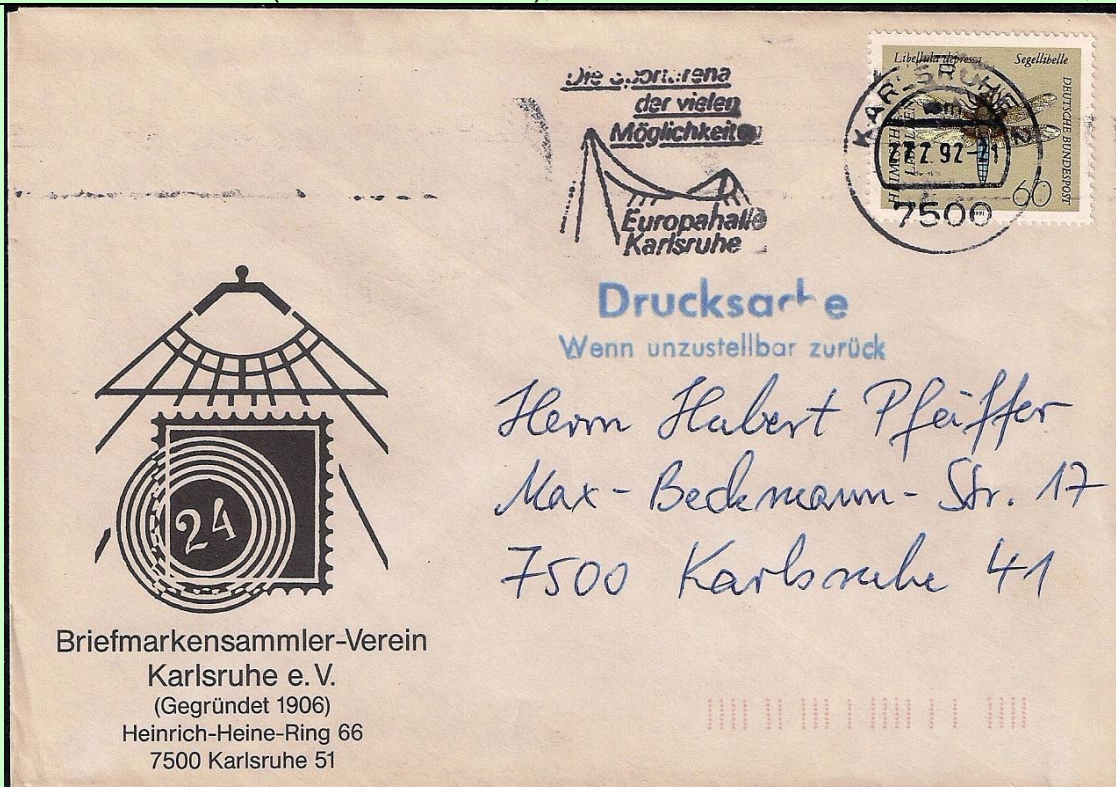 Die Sportarena
der vielen
Möglichkeiten
Europahalle
Karlsruhe
Libellula depressa Segellibelle
DEUTSCHE BUNDESPOST
60
KARLSRUHE 2
92-21
7500
Drucksache
Wenn unzustellbar zurück
Herrn Hubert Pfeiffer
Max-Beckmann-Str. 17
7500 Karlsruhe 41
24
Briefmarkensammler-Verein
Karlsruhe e.V.
(Gegründet 1906)
Heinrich-Heine-Ring 66
7500 Karlsruhe 51